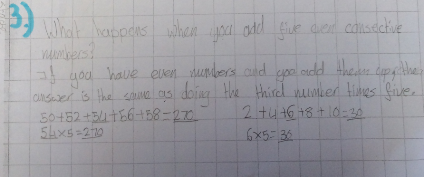 3)
What happens when you add five even consective
numbers?
If you have even numbers and you add them together the
answer is the same as doing the third number times five.
50+52+54+56+58=270 2+4+6+8+10=30
54x5=270 6x5=30